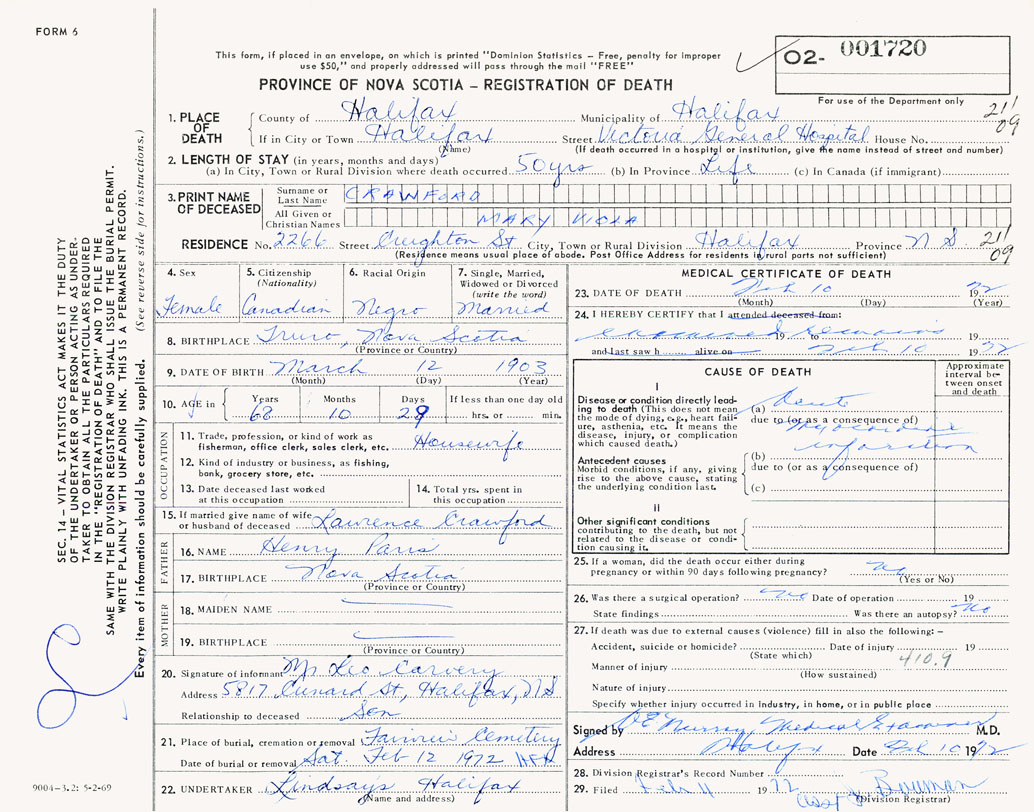 FORM 6
This form, if placed in an envelope, on which is printed "Dominion Statistics – Free, penalty for improper
use $50," and properly addressed will pass through the mail "FREE"
O2- 001720
PROVINCE OF NOVA SCOTIA – REGISTRATION OF DEATH
For use of the Department only
21/
09
1. PLACE OF DEATH
County of Halifax Municipality of Halifax
If in City or Town Halifax Street Victoria General Hospital House No.
(Name) (If death occurred in a hospital or institution, give the name instead of street and number)
2. LENGTH OF STAY (in years, months and days)
(a) In City, Town or Rural Division where death occurred 50 yrs (b) In Province Life (c) In Canada (if immigrant)
3. PRINT NAME OF DECEASED
Surname or Last Name CRAWFORD
All Given or Christian Names MARY VIOLA
RESIDENCE No. 2266 Street Creighton St City, Town or Rural Division Halifax Province N S 21/
09
(Residence means usual place of abode. Post Office Address for residents in rural parts not sufficient)
4. Sex Female
5. Citizenship (Nationality) Canadian
6. Racial Origin Negro
7. Single, Married, Widowed or Divorced (write the word) Married
8. BIRTHPLACE Truro, Nova Scotia
(Province or Country)
9. DATE OF BIRTH March 12 1903
(Month) (Day) (Year)
10. AGE in Years 68 Months 10 Days 29 If less than one day old
hrs. or min.
OCCUPATION
11. Trade, profession, or kind of work as
fisherman, office clerk, sales clerk, etc. Housewife
12. Kind of industry or business, as fishing,
bank, grocery store, etc.
13. Date deceased last worked
at this occupation
14. Total yrs. spent in
this occupation
15. If married give name of wife
or husband of deceased Lawrence Crawford
FATHER
16. NAME Henry Paris
17. BIRTHPLACE Nova Scotia
(Province or Country)
MOTHER
18. MAIDEN NAME
19. BIRTHPLACE
(Province or Country)
20. Signature of informant Mr Leo Carvery
Address 5817 Cunard St, Halifax, NS
Relationship to deceased Son
21. Place of burial, cremation or removal Fairview Cemetery
Date of burial or removal Sat. Feb 12 1972
22. UNDERTAKER Lindsay's Halifax
(Name and address)
MEDICAL CERTIFICATE OF DEATH
23. DATE OF DEATH Feb 10 1972
(Month) (Day) (Year)
24. I HEREBY CERTIFY that I attended deceased from:
examined remains 19 to 19
and last saw h alive on Feb 10 1972
CAUSE OF DEATH
Approximate interval between onset and death
I
Disease or condition directly lead-
ing to death (This does not mean
the mode of dying, e.g., heart fail-
ure, asthenia, etc. It means the
disease, injury, or complication
which caused death.)
(a) Acute
due to (or as a consequence of)
myocardial
infarction
Antecedent causes
Morbid conditions, if any, giving
rise to the above cause, stating
the underlying condition last.
(b)
due to (or as a consequence of)
(c)
II
Other significant conditions
contributing to the death, but not
related to the disease or condi-
tion causing it.
25. If a woman, did the death occur either during
pregnancy or within 90 days following pregnancy? No
(Yes or No)
26. Was there a surgical operation? No Date of operation 19
State findings Was there an autopsy? No
27. If death was due to external causes (violence) fill in also the following: –
Accident, suicide or homicide? Date of injury 19
(State which) 410.9
Manner of injury
(How sustained)
Nature of injury
Specify whether injury occurred in Industry, in home, or in public place
Signed by Murray, Medical Examiner M.D.
Address Halifax Date Feb 10 1972
28. Division Registrar's Record Number
29. Filed Feb 11 1972 Bowman
(Division Registrar)
SEC. 14 – VITAL STATISTICS ACT MAKES IT THE DUTY
OF THE UNDERTAKER OR PERSON ACTING AS UNDER-
TAKER TO OBTAIN ALL THE PARTICULARS REQUIRED
IN THE "REGISTRATION OF DEATH" AND TO FILE THE
SAME WITH THE DIVISION REGISTRAR WHO SHALL ISSUE THE BURIAL PERMIT.
WRITE PLAINLY WITH UNFADING INK. THIS IS A PERMANENT RECORD.
Every item of information should be carefully supplied. (See reverse side for instructions.)
9004-3.2: 5-2-69